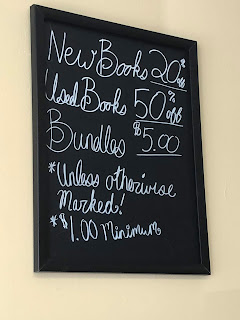 New Books 20% off
Used Books 50% off
Bundles $5.00
*Unless otherwise
Marked!
*$1.00 Minimum